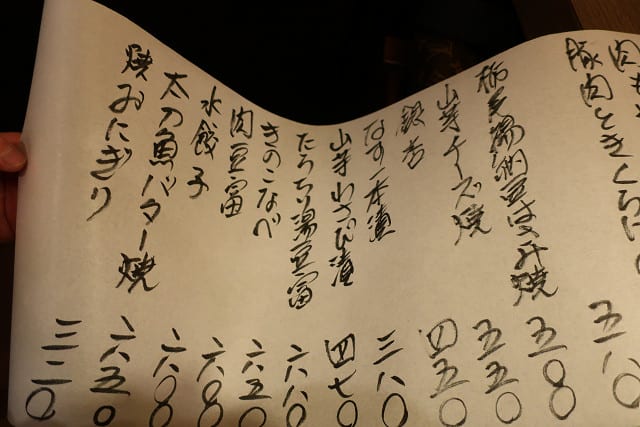 肉も
豚肉ときくらげ 五八〇
栃尾揚納豆はさみ焼 五〇〇
山芋チーズ焼 五五〇
銀杏 四五〇
なす一本漬 三八〇
山芋わさび漬 四七〇
たらちり湯豆富 六八〇
きのこなべ 六五〇
肉豆富 六〇〇
水餃子 六〇〇
太刀魚バター焼 六五〇
焼おにぎり 三二〇